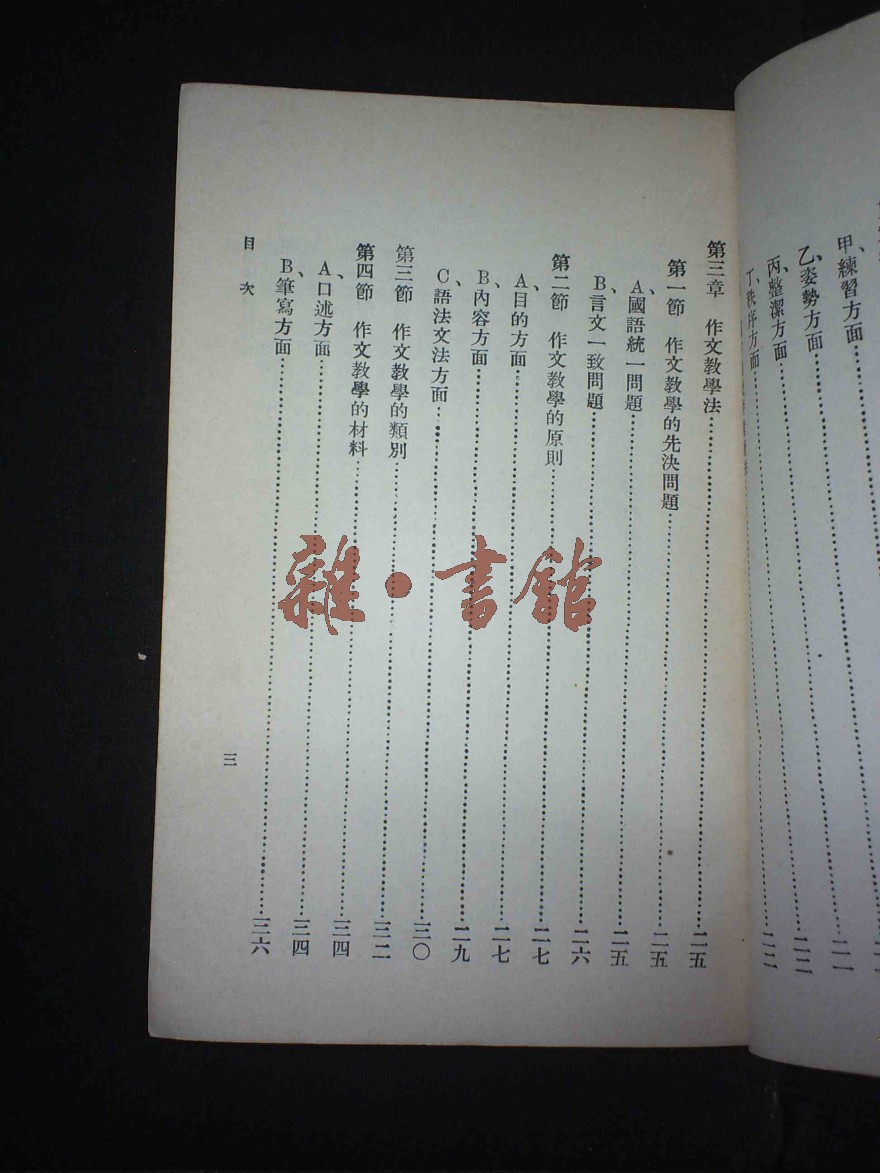 甲、練習方面
乙、姿勢方面……二一
丙、整潔方面……二二
丁、秩序方面……二二
第三章 作文教學法……二五
第一節 作文教學的先決問題……二五
A、國語統一問題……二五
B、言文一致問題……二六
第二節 作文教學的原則……二七
A、目的方面……二七
B、內容方面……二九
C、語法文法方面……三〇
第三節 作文教學的類別……三二
第四節 作文教學的材料……三四
A、口述方面……三四
B、筆寫方面……三六
目次
三
雜·書館